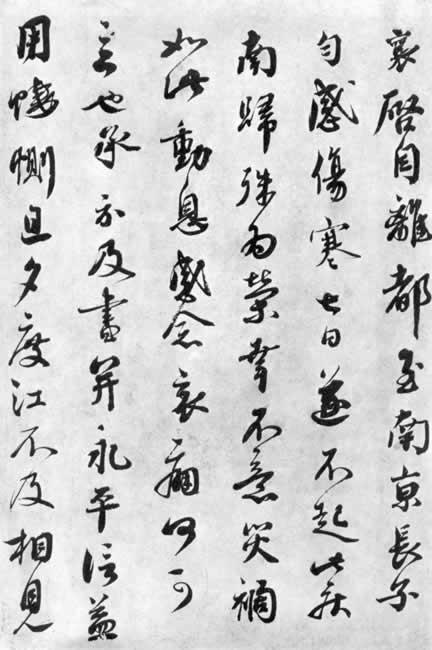 襄啓自離都至南京長子
勻感傷寒七日遂不起此疾
南歸殊為榮幸不意災禍
如此動息感念哀痛何可
言也承示及書并永平信益
用悽惻旦夕度江不及相見